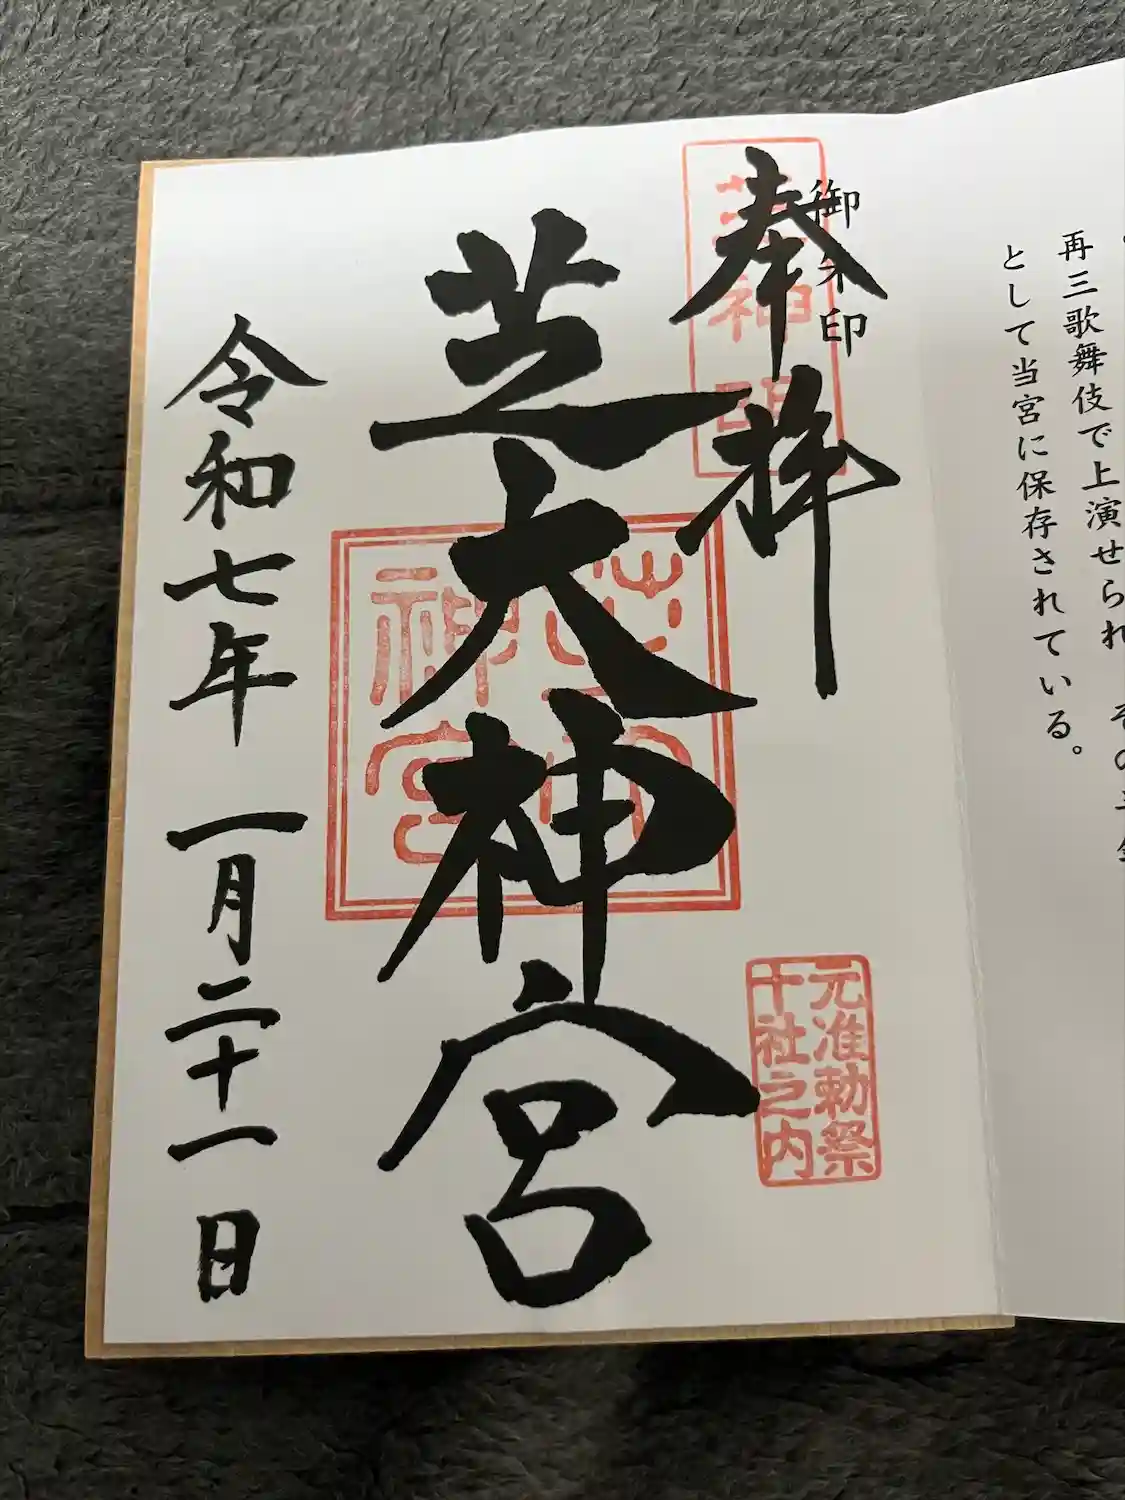 再三歌舞伎で上演せられ
として当宮に保存されている。
御朱印
奉拝
芝神明
芝大神宮
芝大神宮
元准勅祭
十社之内
令和七年 一月二十一日